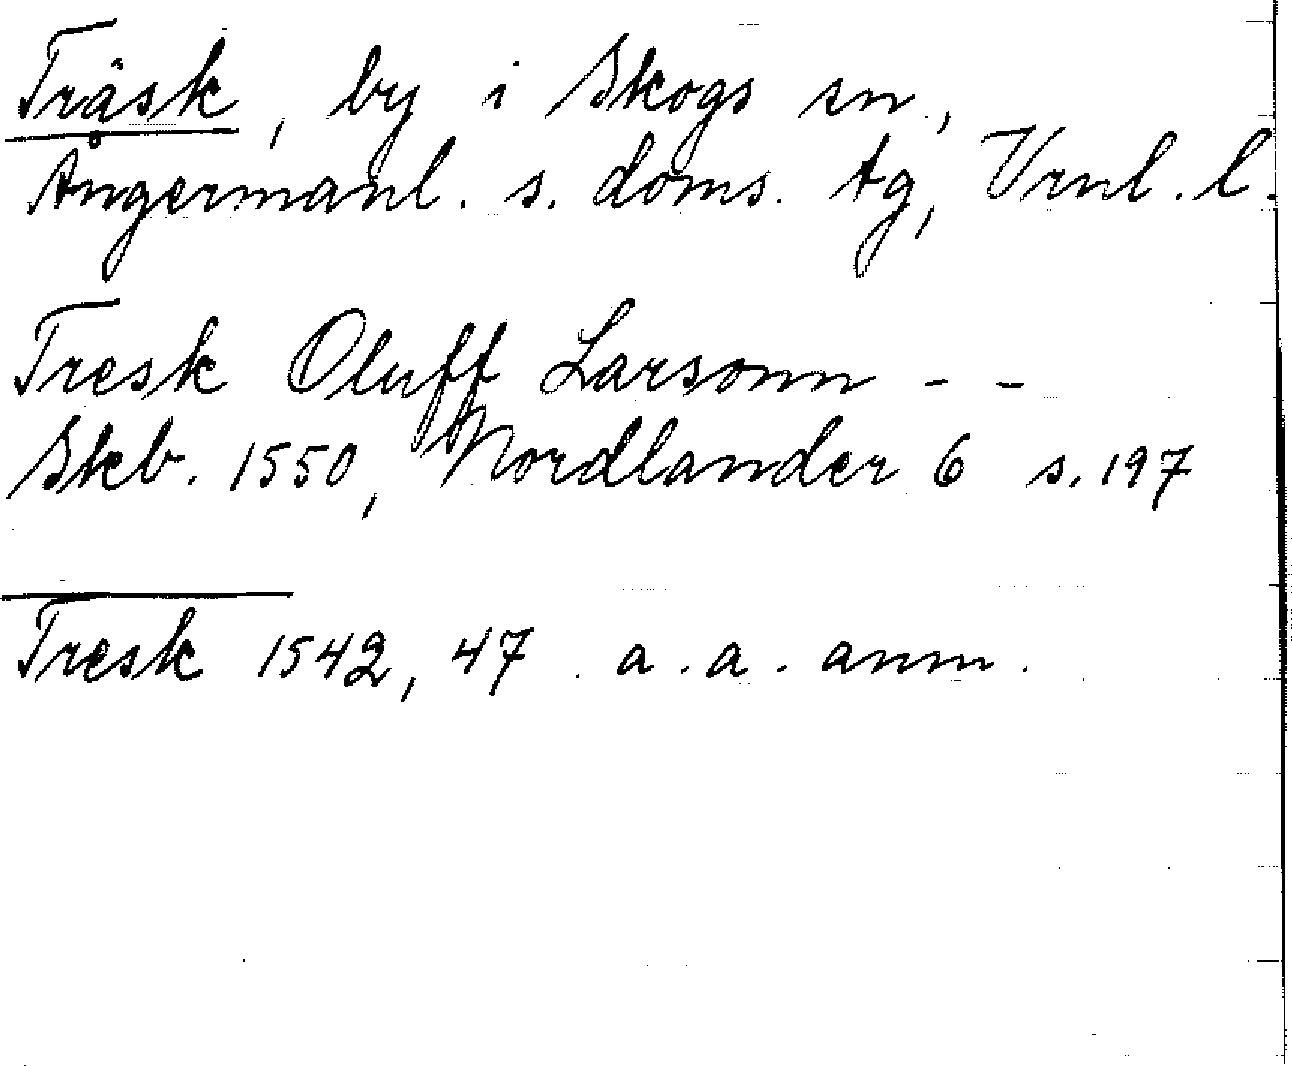 Träsk, by i Skogs sn.,
Ångermanl. s. doms. tg, Vrnl. l.
Tresk Oluff Larsonn - -
Skb. 1550, Nordlander 6 s. 197
Tresk 1542, 47 a. a. anm.